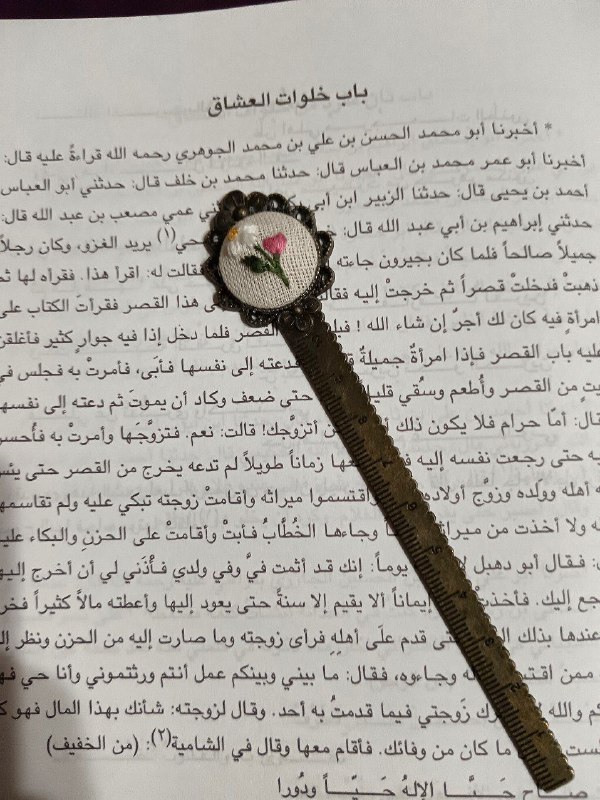 باب خلوات العشاق
* أخبرنا أبو محمد الحسن بن علي بن محمد الجوهري رحمه الله قراءةً عليه قال:
أخبرنا أبو عمر محمد بن العباس قال: حدثنا محمد بن خلف قال: حدثني أبو العباس
أحمد بن يحيى قال: حدثنا الزبير ابن أبي عمي مصعب بن عبد الله قال:
حدثني إبراهيم بن أبي عبد الله قال: (١) يريد الغزو، وكان رجلاً
جميلاً صالحاً فلما كان بجيرون جاءته فقالت له: اقرأ هذا. فقرأه لها ثم
ذهبتْ فدخلتْ قصراً ثم خرجتْ إليه فقالت هذا القصر فقرأتَ الكتاب على
امرأةٍ فيه كان لك أجرٌ إن شاء الله ! القصر فلما دخل إذا فيه جوارٍ كثير فأغلقن
عليه باب القصر فإذا امرأةٌ جميلةٌ فدعته إلى نفسها فأبى، فأمرتْ به فجلس في
بيتٍ من القصر وأُطعم وسُقي قليلاً حتى ضعف وكاد أن يموتَ ثم دعته إلى نفسها
قال: أمّا حرام فلا يكون ذلك أتزوَّجك! قالت: نعم. فتزوَّجَها وأمرتْ به فأُحسن
إليه حتى رجعت نفسه إليه معها زماناً طويلاً لم تدعه يخرج من القصر حتى يئس
به أهله وولَده وزوَّج أولاده اقتسموا ميراثه وأقامتْ زوجته تبكي عليه ولم تقاسمهم
له ولا أخذت من ميراثه وجاءها الخُطَّابُ فأبتْ وأقامتْ على الحزنِ والبكاء عليه
فقال أبو دهبل يوماً: إنك قد أثمت فيَّ وفي ولدي فأْذَني لي أن أخرج إليهم
جع إليك. فأخذت إيماناً ألا يقيم إلا سنةً حتى يعود إليها وأعطته مالاً كثيراً فخرج
عندها بذلك حتى قدم على أهله فرأى زوجته وما صارت إليه من الحزن ونظر إلى
ممن اقتسم وجاءوه، فقال: ما بيني وبينكم عمل أنتم ورثتموني وأنا حي فهو
كم والله زَوجتي فيما قدمتُ به أحد. وقال لزوجته: شأنك بهذا المال فهو
ما كان من وفائك. فأقام معها وقال في الشامية(٢): (من الخفيف)
صاح حَيَّا الإلهُ حَيَّاً ودُورا